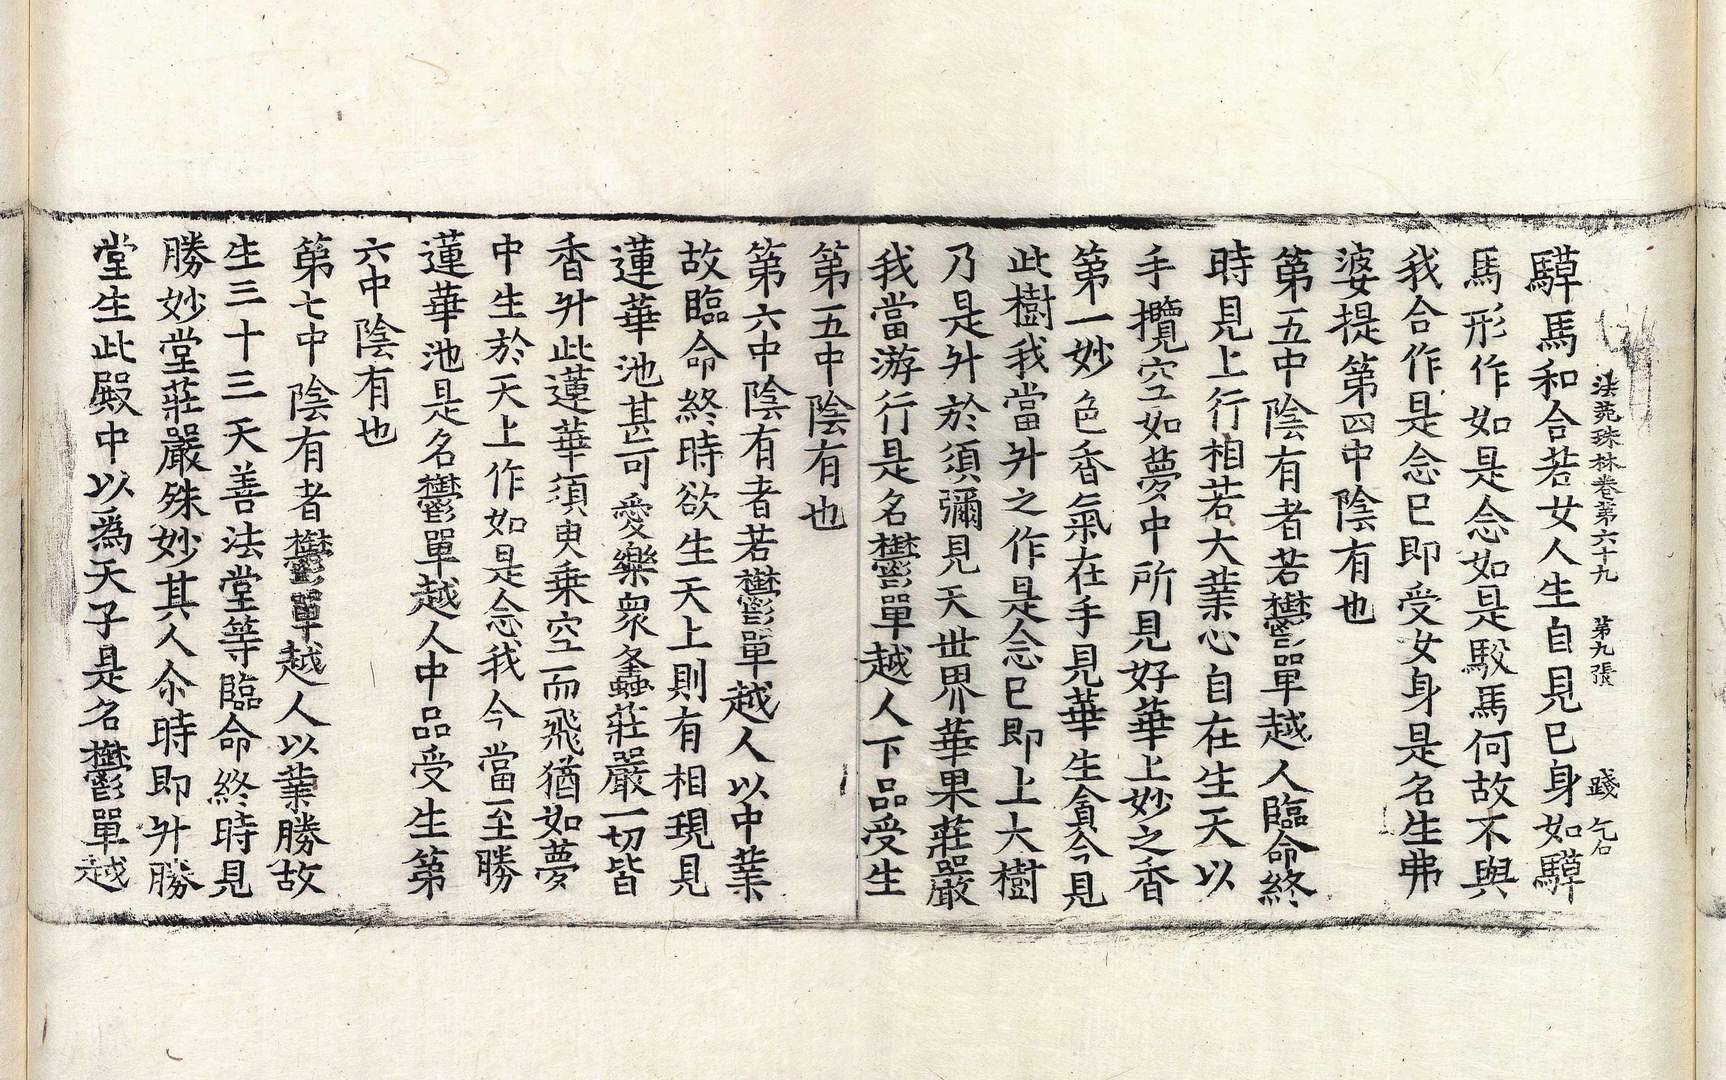 法苑珠林卷第六十九 第九張 踐 乞石
騲馬和合若女人生自見已身如騲
馬形作如是念如是駁馬何故不與
我合作是念已即受女身是名生弗
婆提第四中陰有也
第五中陰有者若鬱單越人臨命終
時見上行相若大業心自在生天以
手攬空如夢中所見好華上妙之香
第一妙色香氣在手見華生貪今見
此樹我當升之作是念已即上大樹
乃是升於須彌見天世界華果莊嚴
我當游行是名鬱單越人下品受生
第五中陰有也
第六中陰有者若鬱單越人以中業
故臨命終時欲生天上則有相現見
蓮華池甚可愛樂衆蜂莊嚴一切皆
香升此蓮華須臾乘空而飛猶如夢
中生於天上作如是念我今當至勝
蓮華池是名鬱單越人中品受生第
六中陰有也
第七中陰有者鬱單越人以業勝故
生三十三天善法堂等臨命終時見
勝妙堂莊嚴殊妙其人尒時即升勝
堂生此殿中以為天子是名鬱單越